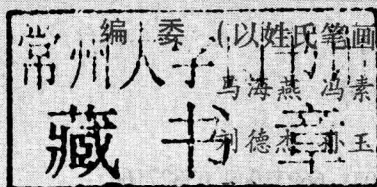 编 委 (以姓氏笔画
常州人子
马海燕 冯素
藏书章
刘德杰 孙玉